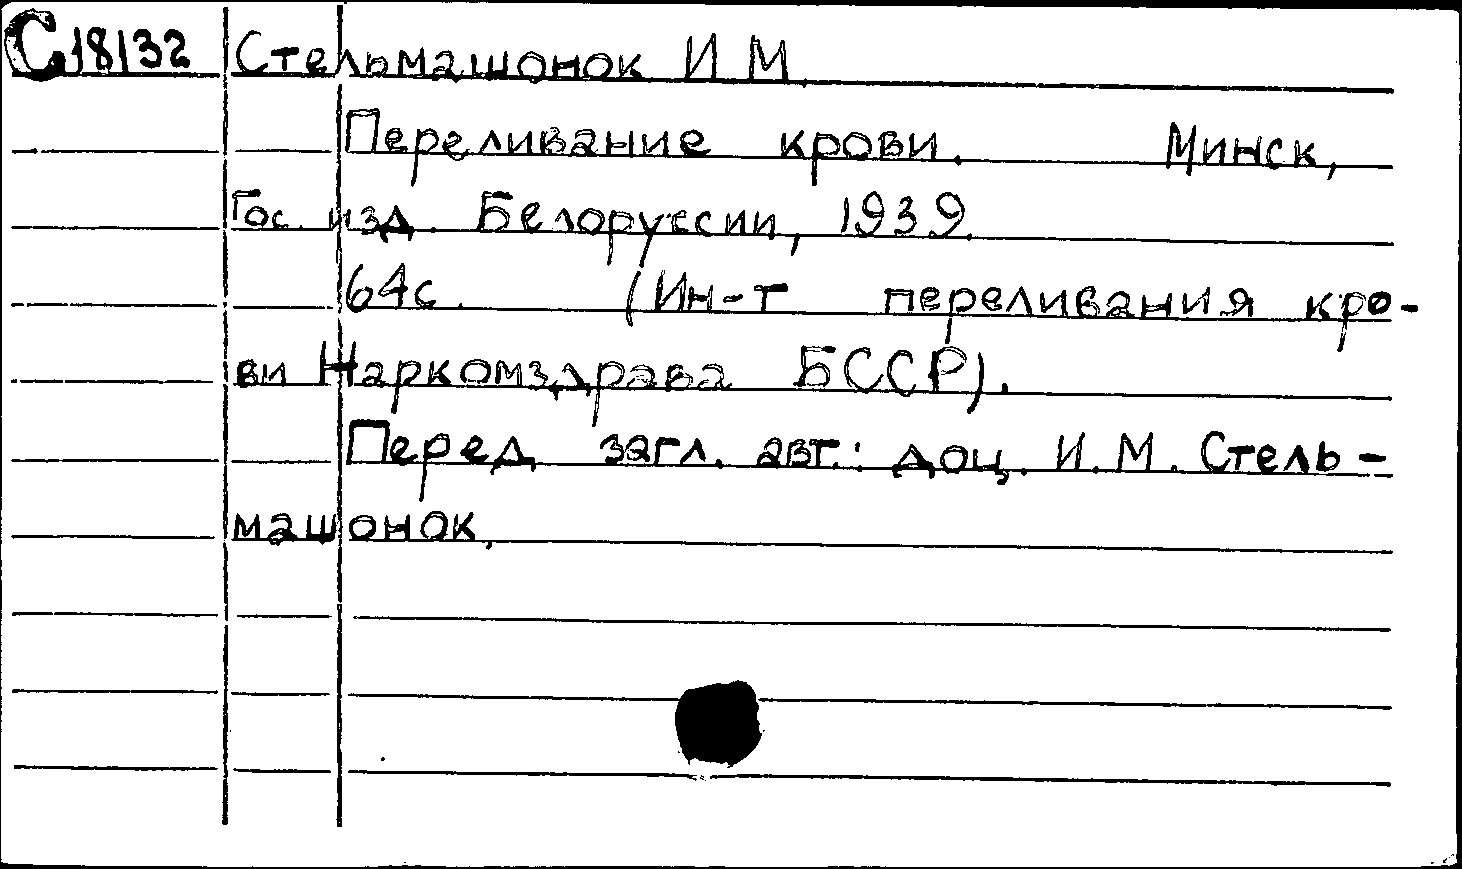 С18132 Стельмашонок И М.
Переливание крови. Минск,
Гос. изд. Белоруссии, 1939.
64с. (Ин-т переливания кро-
ви Наркомздрава БССР).
Перед загл. авт.: доц. И.М. Стель-
машонок.